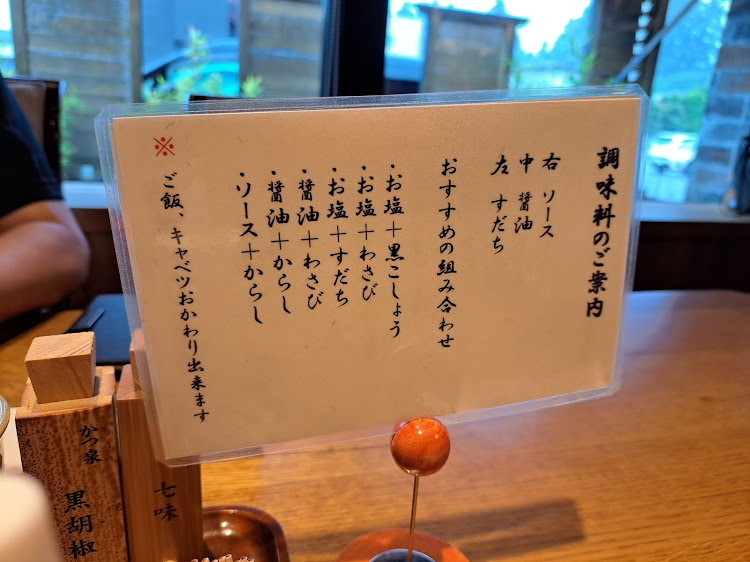 調味料のご案内
右 ソース
中 醤油
左 すだち
おすすめの組み合わせ
・お塩＋黒こしょう
・お塩＋わさび
・お塩＋すだち
・醤油＋わさび
・醤油＋からし
・ソース＋からし
※
ご飯、キャベツおかわり出来ます
かつ泉
黒胡椒
七味